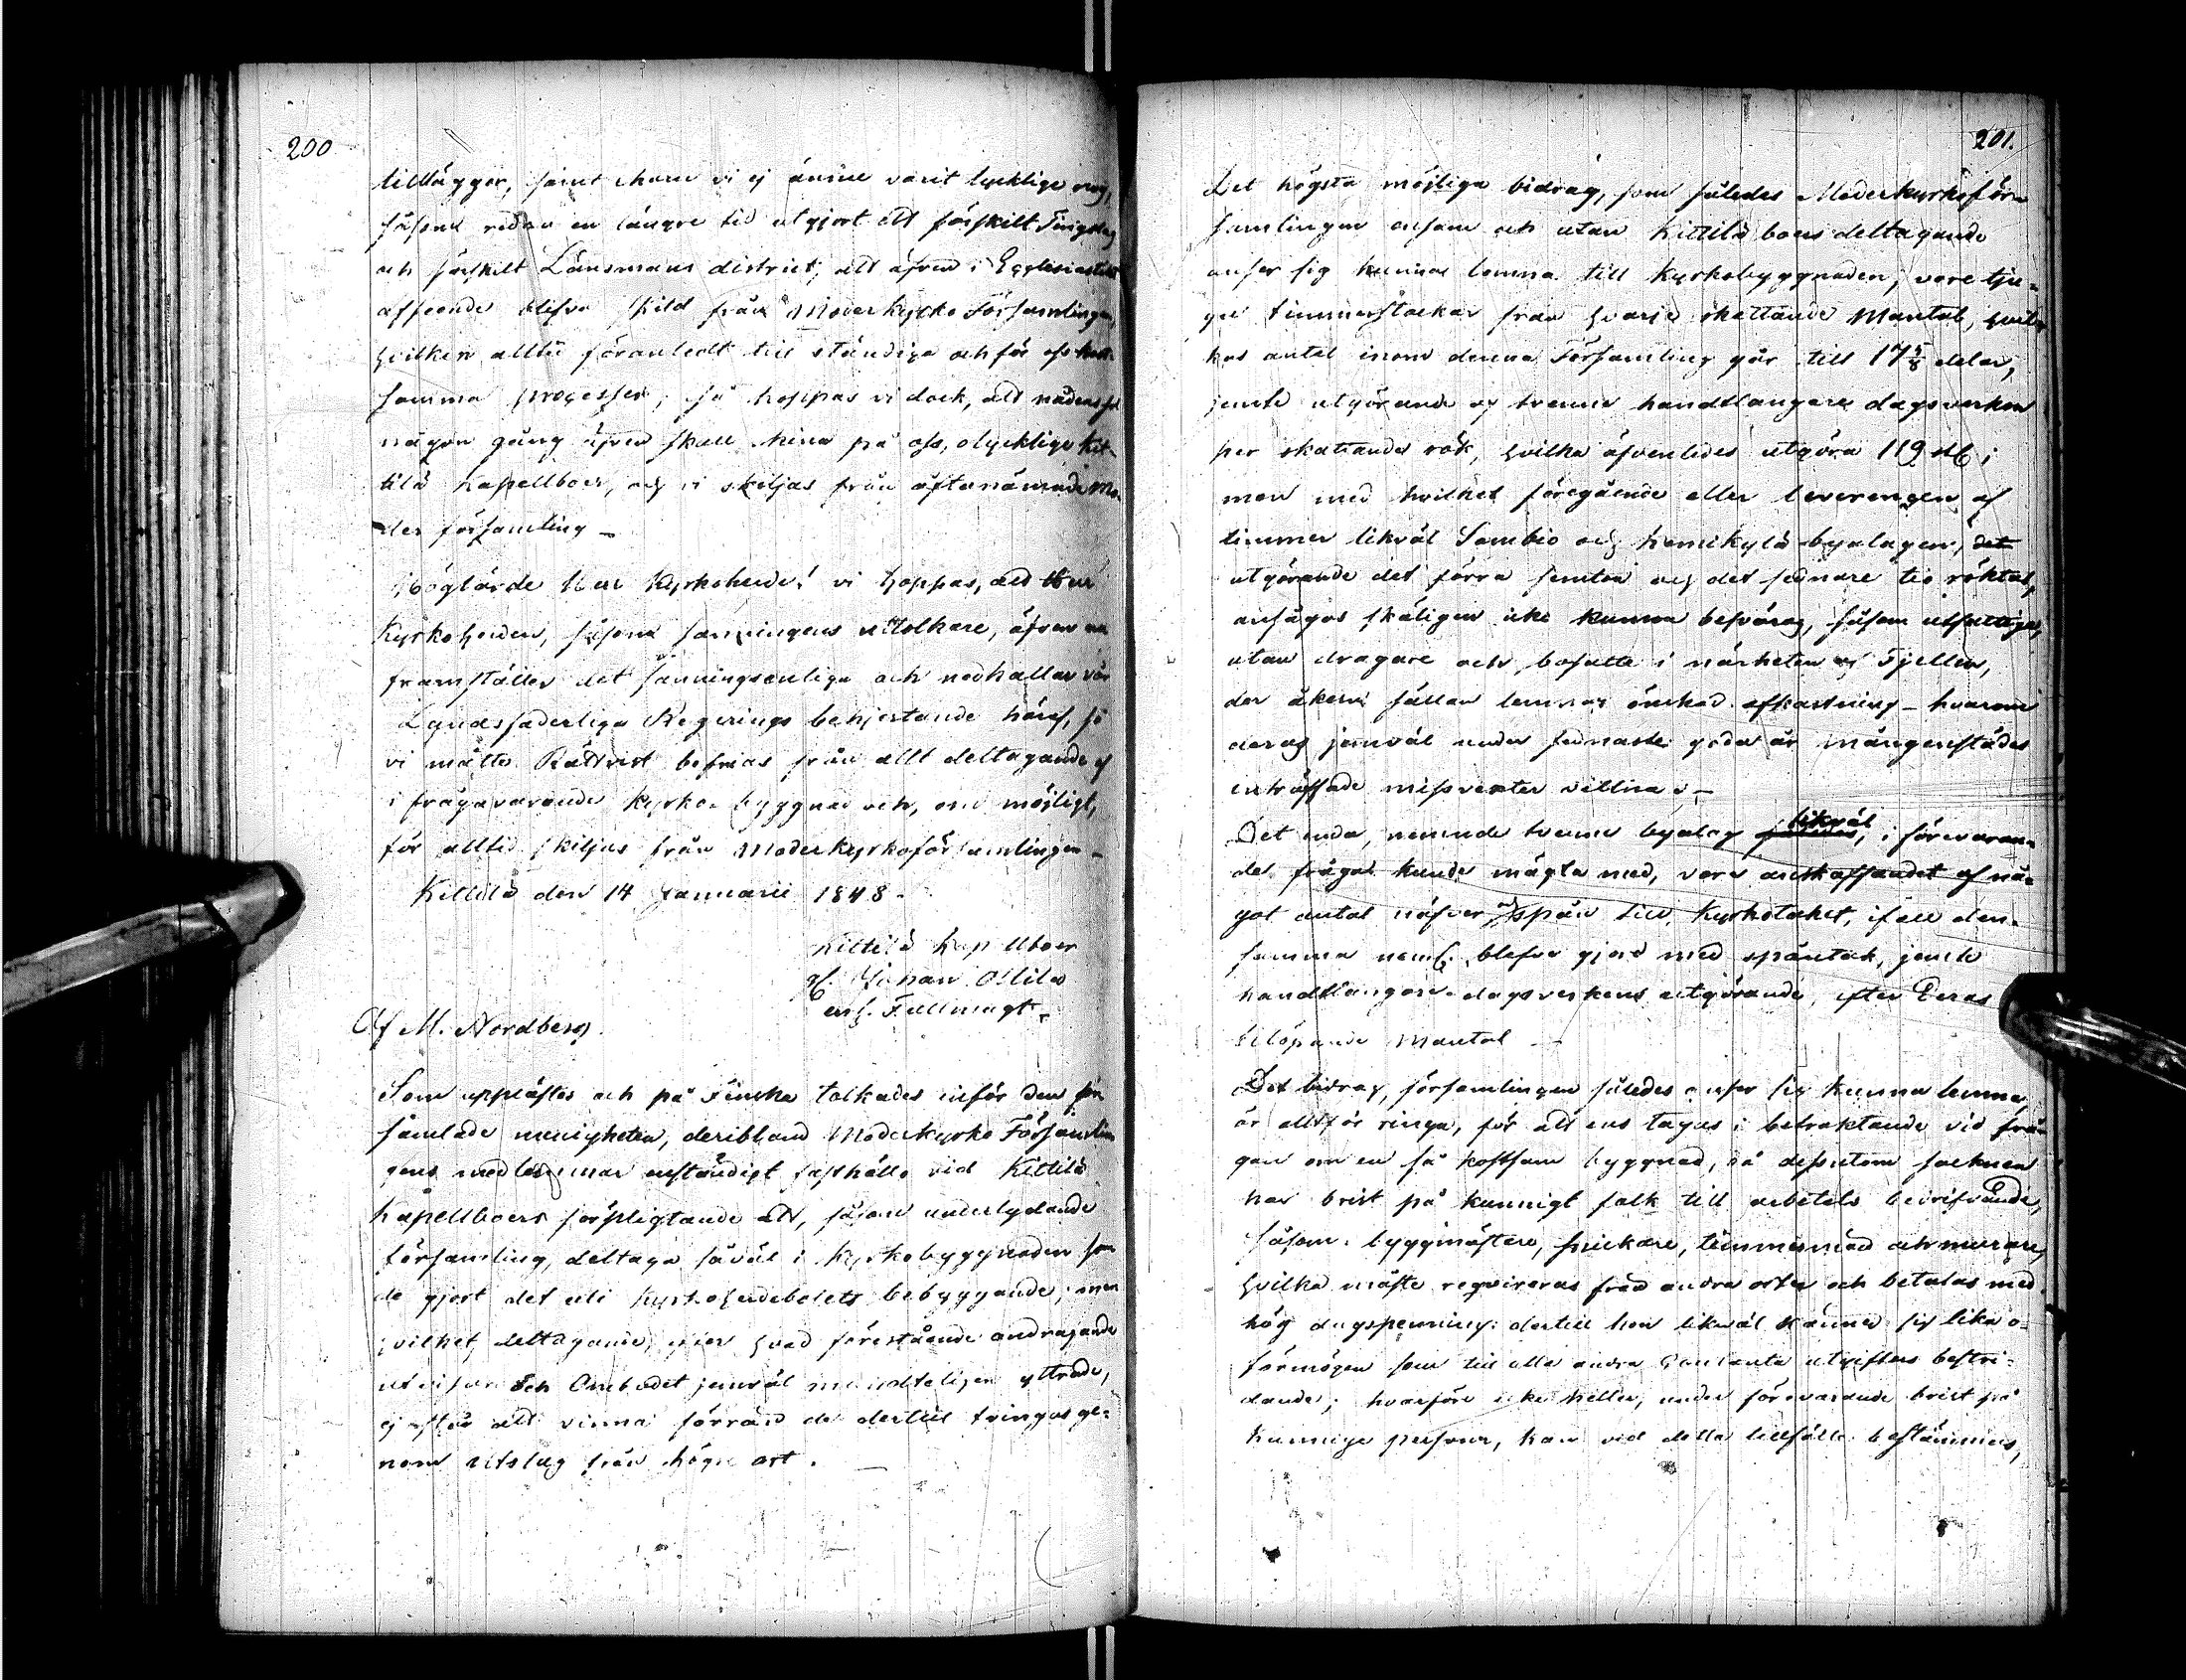 200
tillägger, samt ehuru vi ej ännu varit lycklige nog,
såsom redan en längre tid utgjort ett särskilt Tingslag
och särskilt Länsmans district, att äfven i Ecclesiastikt
afseende blifva skild från Moderkyrko Församlingen,
hvilken alltid föranledt till ständiga och för oss kost-
samma processer, så hoppas vi dock, att nådens sol
någon gång äfven skall skina på oss, olycklige Kit-
tilä kapellboer, och vi skiljas från oftanämnde Mo-
der församling –
Höglärde Herr Kyrkoherde! vi hoppas, att Herr
Kyrkoherden, såsom sanningens uttolkare, äfven nu
framställer det sanningsenliga och nedkallar vår
Landsfaderliga Regerings behjertande häraf, så
vi måtte Rättvist befrias från allt deltagande
i frågavarande kyrko byggnad och, om möjligt,
för alltid skiljas från Moderkyrkoförsamlingen –
Kittilä den 14 Januarii 1848.
Kittilä Kapellboer
gm. Johan Ollila
enl. Fullmagt.
Af M. Nordberg.
Som upplästes och på Finska tolkades inför den för-
samlade menigheten, deribland Moderkyrko Försanlin
gens medlemmar enständigt fasthöllo vid Kittilä
kapellboers förpligtande att, såsom underlydande
församling, deltaga såväl i Kyrkobyggnaden som
de gjort det uti Kyrkoherdebolets bebyggande; men
hvilket deltagande, efter hvad förestående andragande
utvisar och Ombudet jemväl muntteligen yttrade,
ej står att vinna förrän de dertill tvingas ge-
nom utslag från högre ort.
201.
Det högsta möjliga bidrag, som således Moderkyrkoför-
samlingen ensam och utan Kittilä boers deltagande
anser sig kunna lemna till Kyrkobyggnaden, vore tju-
gu timmerstockar från hvarje skattande Mantal, hvil-
kas antal inom denna Församling går till 17 5/8 delar,
jemte utgörande af tvenne handtlangare dagsverken
per skattande rök, hvilka äfvenledes utgöra 119 st;
men med hvilket föregående eller leverengen af
timmer likväl Sombio och Kemikylä byalagen, det
utgörande det förra femton och det sednare tio röktal,
ansågos skäligen icke kunna besväras, såsom utfattiga,
utan dragare och bosatte i närheten af Fjellen,
der åkern sällan lemnar önskad afkastning – hvarom
deras jemväl under sednaste goda år mångenstädes
inträffade missvexter vittna. –
Det enda, nemnde tvenne byalag <s>således</s> likväl, i förevaran-
de fråga kunde mägta med, vore anskaffandet af nå-
got antal näfver och spån till Kyrkotaket, ifall den-
samma neml. blefve gjord med spåntak, jemte
handtlangare-dagsverkens utgörande, efter Deras
tillöpande Mantal –
Det bidrag, församlingen således anser sig kunna lemna,
är alltför ringa, för att ens tagas i betraktande vid frå-
gan om en så kostsam byggnad, då dessutom socknen
har brist på kunnigt folk till arbetets bedrifvande,
såsom: byggmästare, snickare, timmermän och murare,
hvilka måste reqvireras från andra orter och betalas med
hög dagspenning: dertill hon likväl känner sig lika o-
förmögen som till alla andra contanta utgifters bestri-
dande; hvarföre icke heller, under förevarande brist på
kunniga personer, kan vid detta tillfälle bestämmas,